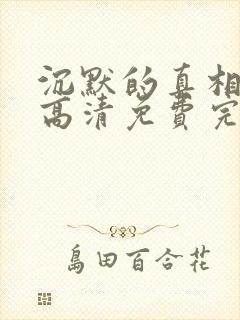 沉默的真相
高清免费完
島田百合花